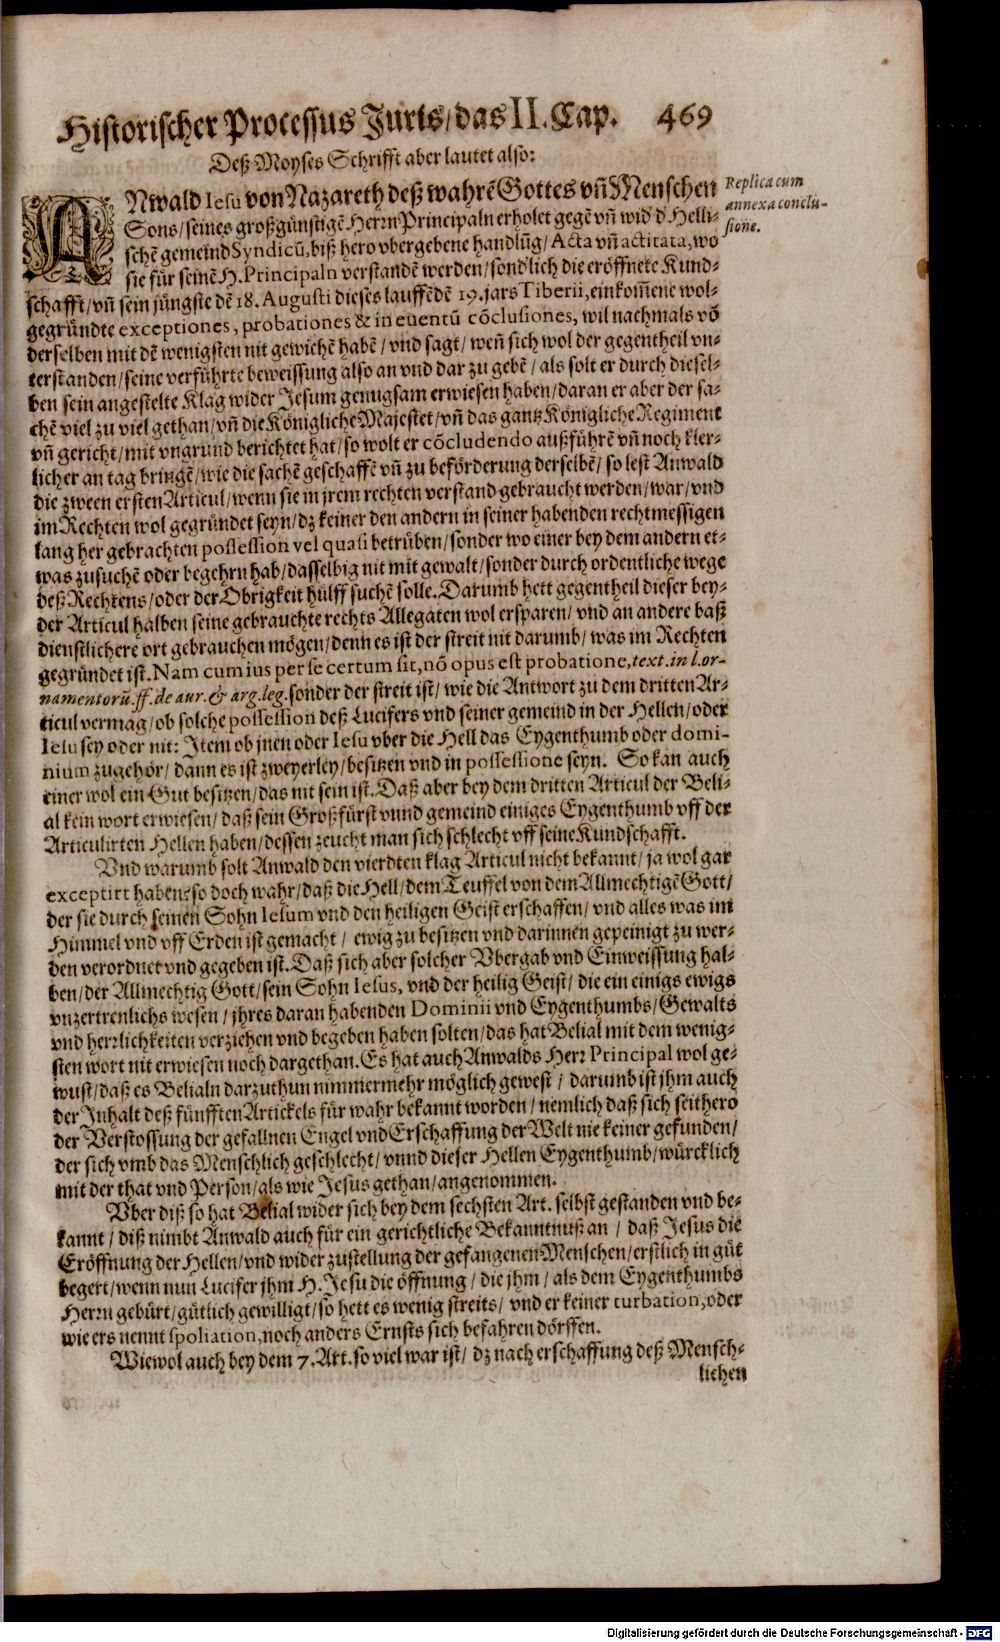 Historischer Processus Juris/ das II. Cap. 469
Deß Moyses Schrifft aber lautet also:
ANwald Iesu von Nazareth deß wahrẽ Gottes vñ Menschen
Replica cum
annexa conclu-
sione.
Sons/ seines großgünstigẽ Herrn Principaln erholet gegẽ vñ wid' d' Helli-
schẽ gemeind Syndicũ, biß hero vbergebene handlũg/ Acta vñ actitata, wo
sie für seinẽ H. Principaln verstandẽ werden/ sonđlich die eröffnete Kund-
schafft/ vñ sein jüngste dẽ 18. Augusti dieses lauffẽdẽ 19. jars Tiberii, einkom̃ene wol-
gegründte exceptiones, probationes & in euentũ cõclusiones, wil nachmals võ
derselben mit dẽ wenigsten nit gewichẽ habẽ/ vnd sagt/ weñ sich wol der gegentheil vn-
terstanden/ seine verführte beweissung also an vnd dar zu gebẽ/ als solt er durch diesel-
ben sein angestelte Klag wider Jesum genugsam erwiesen haben/ daran er aber der sa-
chẽ viel zu viel gethan/ vñ die Königliche Majestet/ vñ das gantz Königliche Regiment
vñ gericht/ mit vngrund berichtet hat/ so wolt er cõcludendo außführẽ vñ noch kler-
licher an tag bringẽ/ wie die sachẽ geschaffẽ vñ zu beförderung derselbẽ/ so lest Anwald
die zween ersten Articul/ wenn sie in jrem rechten verstand gebraucht werden/ war/ vnd
im Rechten wol gegründet seyn/ dz keiner den andern in seiner habenden rechtmessigen
lang her gebrachten possession vel quasi betrüben/ sonder wo einer bey dem andern et-
was zusuchẽ oder begehrn hab/ dasselbig nit mit gewalt/ sonder durch ordentliche wege
deß Rechtens/ oder der Obrigkeit hülff suchẽ solle. Darumb hett gegentheil dieser bey-
der Articul halben seine gebrauchte rechts Allegaten wol ersparen/ vnd an andere baß
dienstlichere ort gebrauchen mögen/ denn es ist der streit nit darumb/ was im Rechten
gegründet ist. Nam cum ius per se certum sit, nõ opus est probatione, text. in l. or-
namentorũ. ff. de aur. & arg. leg. sonder der streit ist/ wie die Antwort zu dem dritten Ar-
ticul vermag/ ob solche possession deß Lucifers vnd seiner gemeind in der Hellen/ oder
Iesu sey oder nit: Item ob jnen oder Iesu vber die Hell das Eygenthumb oder domi-
nium zugehör/ dann es ist zweyerley/ besitzen vnd in possessione seyn. So kan auch
einer wol ein Gut besitzen/ das nit sein ist. Daß aber bey dem dritten Articul der Beli-
al kein wort erwiesen/ daß sein Großfürst vnnd gemeind einiges Eygenthumb vff der
Articulirten Hellen haben/ dessen zeucht man sich schlecht vff seine Kundschafft.
Vnd warumb solt Anwald den vierdten klag Articul nicht bekannt/ ja wol gar
excipirt haben: so doch wahr/ daß die Hell/ dem Teuffel von dem Allmechtigẽ Gott/
der sie durch seinen Sohn Iesum vnd den heiligen Geist erschaffen/ vnd alles was im
Himmel vnd vff Erden ist gemacht/ ewig zu besitzen vnd darinnen gepeinigt zu wer-
den verordnet vnd gegeben ist. Daß sich aber solcher Vbergab vnd Einweissung hal-
ben/ der Allmechtig Gott/ sein Sohn Iesus, vnd der heilig Geist/ die ein einigs ewigs
vnzertrenlichs wesen/ jhres daran habenden Dominii vnd Eygenthumbs/ Gewalts
vnd herrlichkeiten verziehen vnd begeben haben solten/ das hat Belial mit dem wenig-
sten wort nit erwiesen noch dargethan. Es hat auch Anwalds Herr Principal wol ge-
wust/ daß es Belialn darzuthun nimmermehr möglich gewest/ darumb ist jhm auch
der Inhalt deß fünfften Artickels für wahr bekannt worden/ nemlich daß sich seithero
der Verstossung der gefallnen Engel vnd Erschaffung der Welt nie keiner gefunden/
der sich vmb das Menschlich geschlecht/ vnnd dieser Hellen Eygenthumb/ würcklich
mit der that vnd Person/ als wie Jesus gethan/ angenommen.
Vber diß so hat Belial wider sich bey dem sechsten Art. selbst gestanden vnd be-
kannt/ diß nimbt Anwald auch für ein gerichtliche Bekanntnuß an/ daß Jesus die
Eröffnung der Hellen/ vnd wider zustellung der gefangenen Menschen/ erstlich in güt
begert/ wenn nun Lucifer jhm H. Jesu die öffnung/ die jhm/ als dem Eygenthumbs
Herrn gebürt/ gütlich gewilligt/ so hett es wenig streits/ vnd er keiner turbation, oder
wie ers nennt spoliation, noch anders Ernsts sich befahren dörffen.
Wiewol auch bey dem 7. Art. so viel war ist/ dz nach erschaffung deß Mensch-
lichen
Digitalisierung gefördert durch die Deutsche Forschungsgemeinschaft - DFG